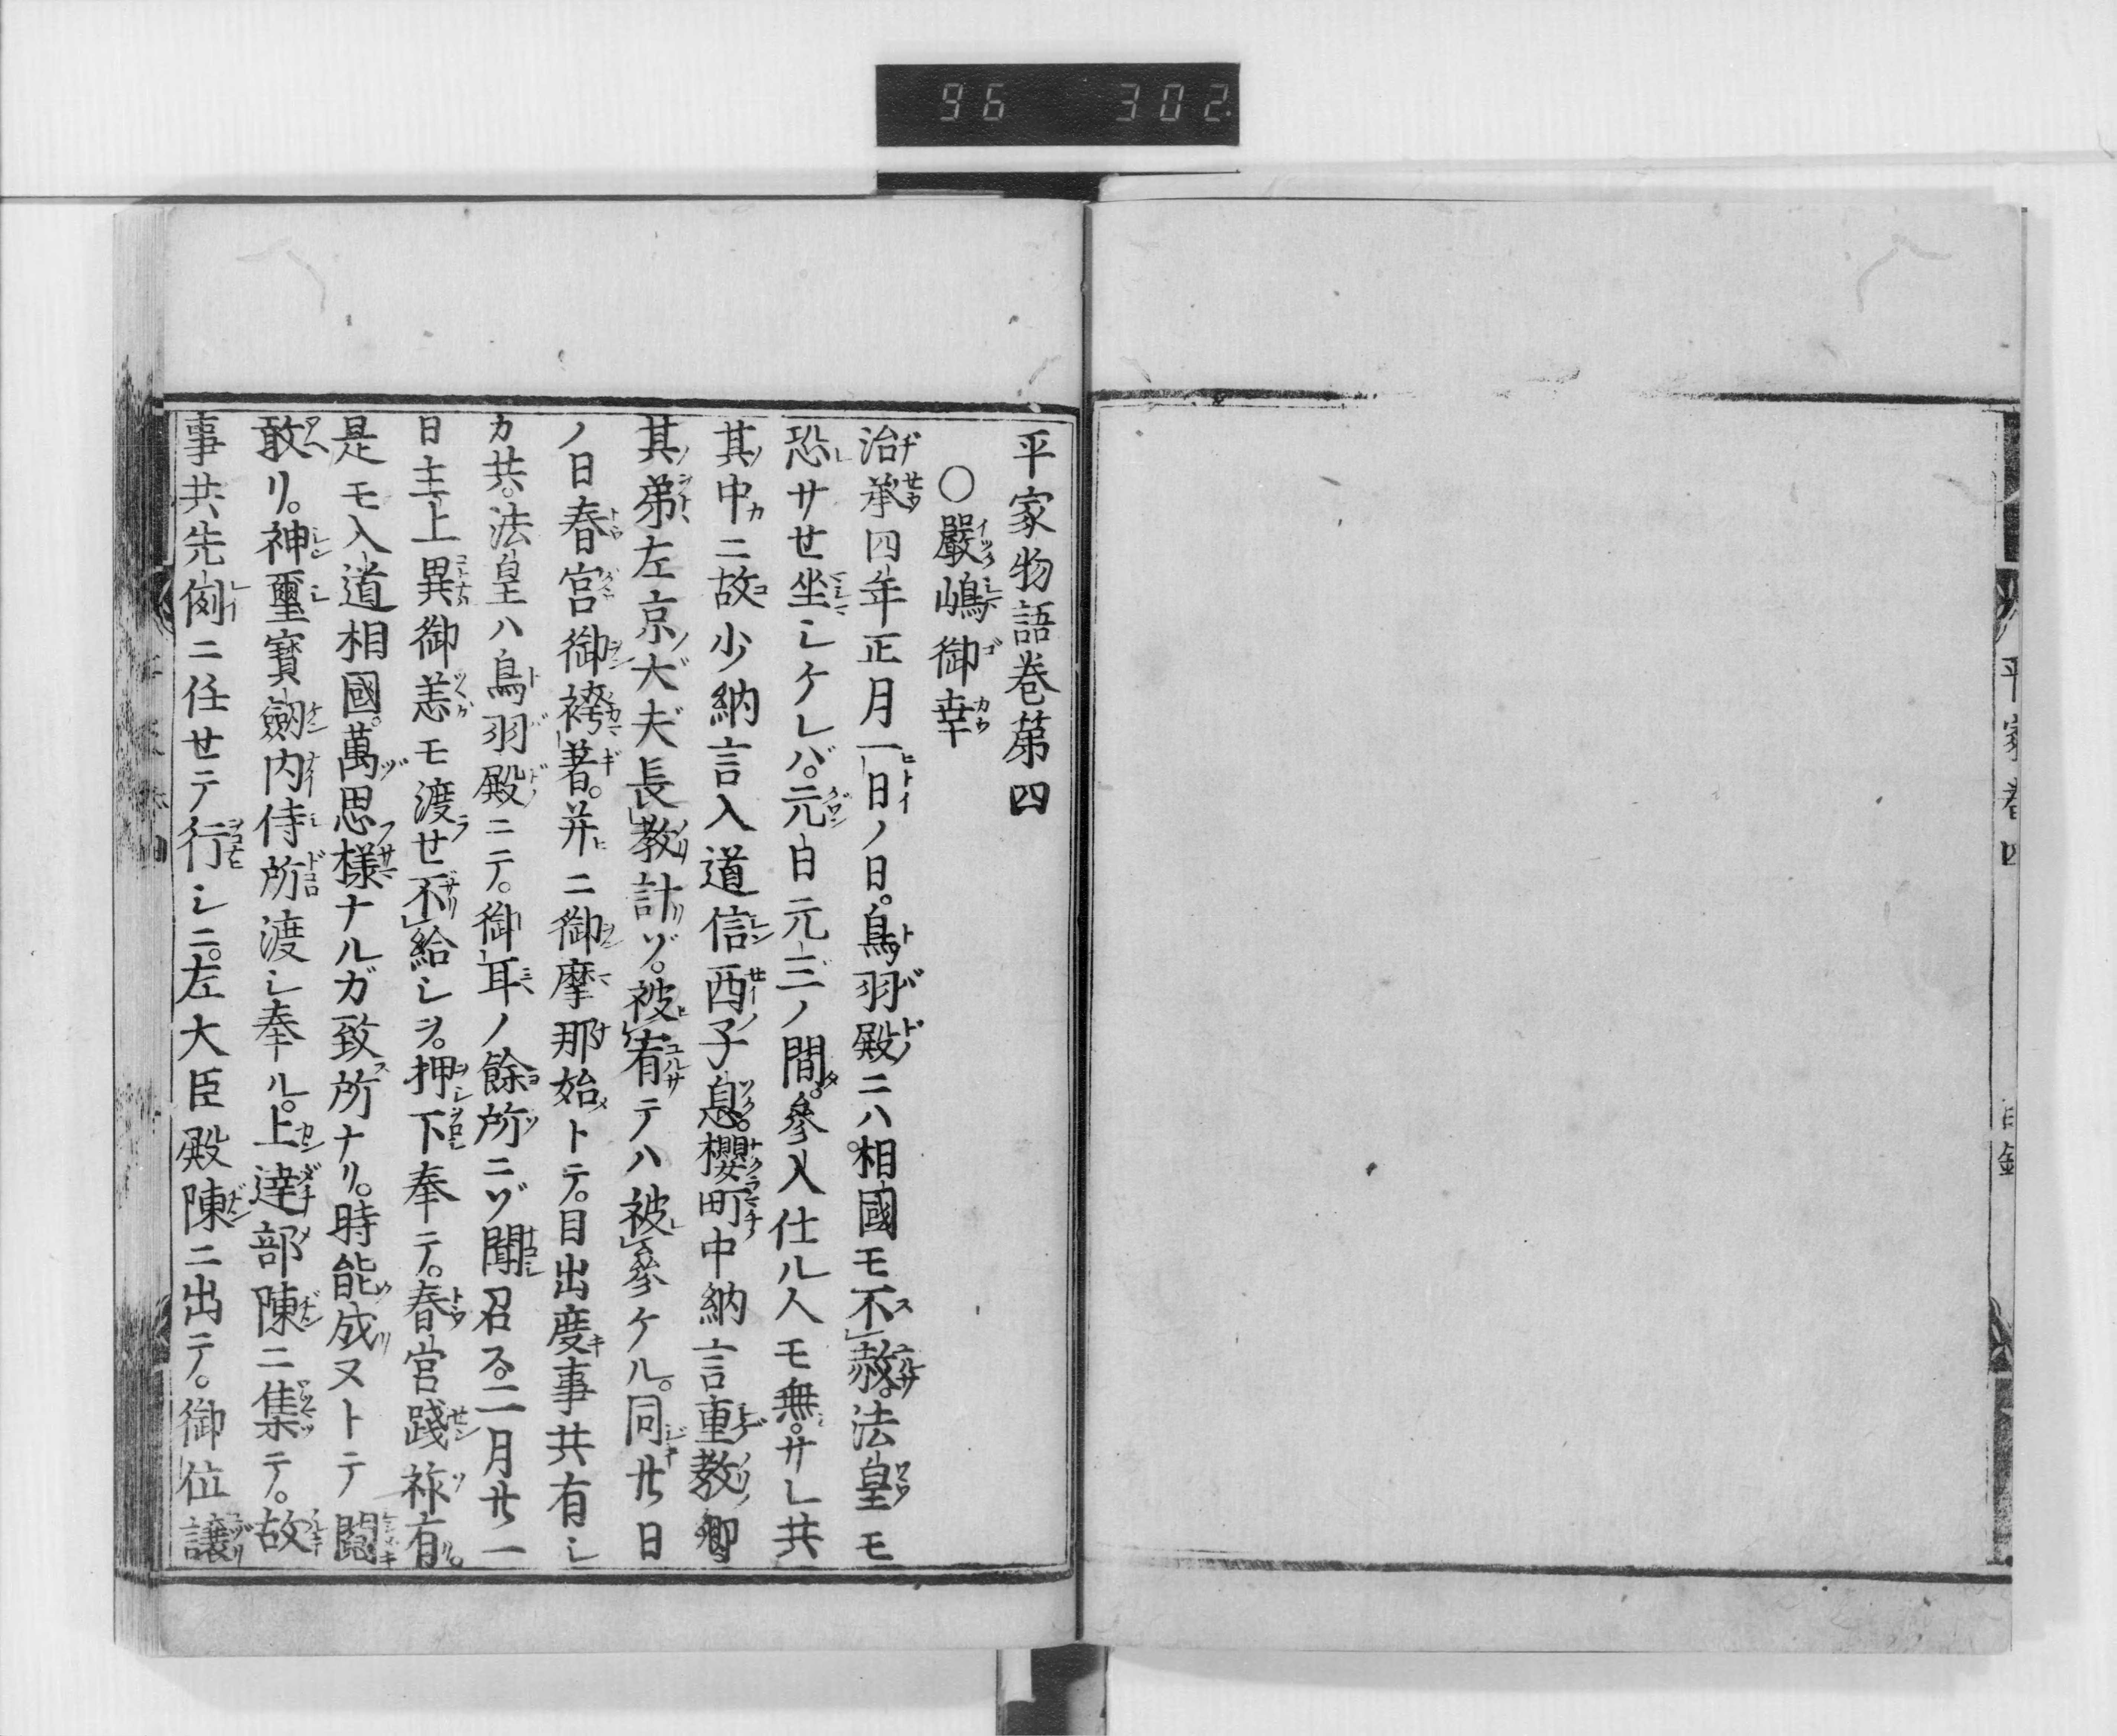 96 302
平家物語巻第四
○嚴嶋御幸
治承四年正月一日ノ日。鳥羽殿ニハ。相國モ不赦。法皇モ
恐サセ坐シケレバ。元日元三ノ間。參入仕ル人モ無。サレ共
其中ニ故少納言入道信西ノ子息。櫻町中納言重教卿
其弟左京大夫長教計ゾ。被宥テハ被參ケル。同廿日
ノ日春宮御袴著。并ニ御摩那始トテ。目出度事共有シ
カ共。法皇ハ鳥羽殿ニテ。御耳ノ餘所ニゾ聞召ス。二月廿一
日主上異御恙モ渡セ不給シヲ。押下奉テ。春宮踐祚有。
是モ入道相國。萬思樣ナルガ致所ナリ。時能成ヌトテ閧
敢リ。神璽寶劔内侍所渡シ奉ル。上達部陳ニ集テ。故
事共先例ニ任セテ行シニ。左大臣殿陳ニ出テ。御位譲
平家巻四
目錄